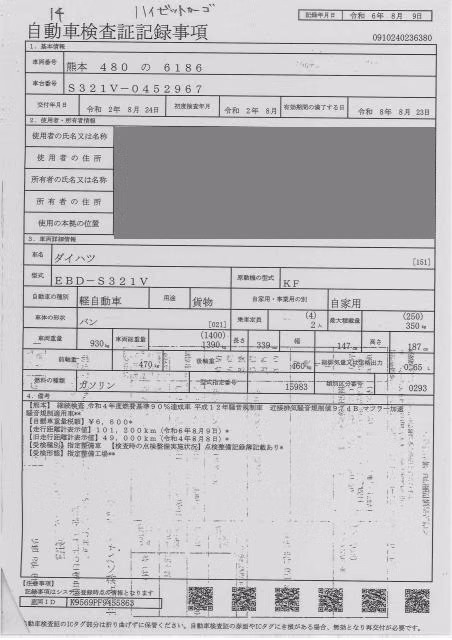 14 ハイゼットカーゴ
記録年月日 令和 6年 8月 9日
自動車検査証記録事項
0910240236380
1. 基本情報
車両番号 熊本 480 の 6186
車台番号 S321V-0452967
交付年月日 令和 2年 8月 24日 初度検査年月 令和 2年 8月 有効期間の満了する日 令和 8年 8月 23日
2. 使用者・所有者情報
使用者の氏名又は名称
使用者の住所
所有者の氏名又は名称
所有者の住所
使用の本拠の位置
3. 車両詳細情報
車名 ダイハツ [151]
型式 EBD-S321V 原動機の型式 KF
自動車の種別 軽自動車 用途 貨物 自家用・事業用の別 自家用
車体の形状 バン [021] 乗車定員 (4) 2人 最大積載量 (250) 350kg
車両重量 930kg 車両総重量 (1400) 1390kg 長さ 339 幅 147cm 高さ 187cm
前軸重 470kg 後軸重 460kg 総排気量又は定格出力 0.65 L
燃料の種類 ガソリン 型式指定番号 15983 類別区分番号 0293
4. 備考
【熊本】 継続検査 令和4年度燃費基準90%達成車 平成12年騒音規制車 近接排気騒音規制値97dB マフラー加速
騒音規制適用車**
【自動車重量税額】¥6,600*
【走行距離計表示値】101,200km(令和6年8月9日)*
【旧走行距離計表示値】49,000km(令和4年8月8日)*
【受検種別】指定整備車 【検査時の点検整備実施状況】点検整備記録簿記載あり*
【受検形態】指定整備工場**
【注意事項】
記録事項はシステム登録時点の情報となります
車両ID K9569PF9455863
自動車検査証のICタグ部分は折り曲げずに保管ください。自動車検査証の券面やICタグに毀損がある場合、無効となり再交付が必要です。